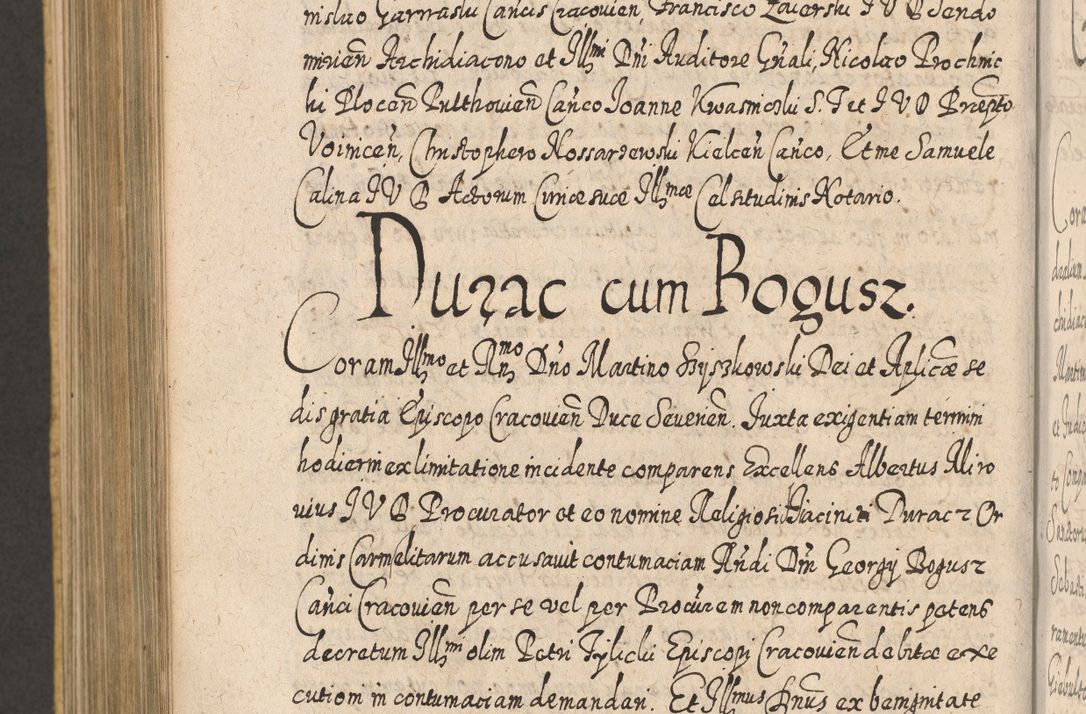 nislao Garnaski Cancs Cracovien, Francisco Zaierski I V D Sendo
mirien Archidiacono et Illmi Dni Auditore Gnali, Nicolao Prochnic
ki Plocen Pulthovien Canco Joanne Kwasnicski S. T et I V D Præpto
Voinicen, Christophero Kossarzewski Kielcen Canco, Et me Samuele
Calina I V D Actorum Curiæ suæ Illmæ Celsitudinis Notario.
Durac cum Bogusz.
Coram Illmo et Rmo Dno Martino Szyszkowski Dei et Aplicæ se
dis gratia Episcopo Cracovien Duce Severien. Juxta exigentiam termini
hodierni ex limitatione incidente comparens Excellens Albertus Miro
vius I V D Procurator et eo nomine Religiosi Hiacinti Duracz Or
dinis Carmelitarum accusavit contumaciam Rndi Dni Georgij Bogusz
Canci Cracovien per se vel per Procurem non comparentis petens
decretum Illmi olim Petri Tylicki Episcopi Cracovien debitæ exe
cutioni in contumaciam demandari. Et Illmus Dnus ex benignitate